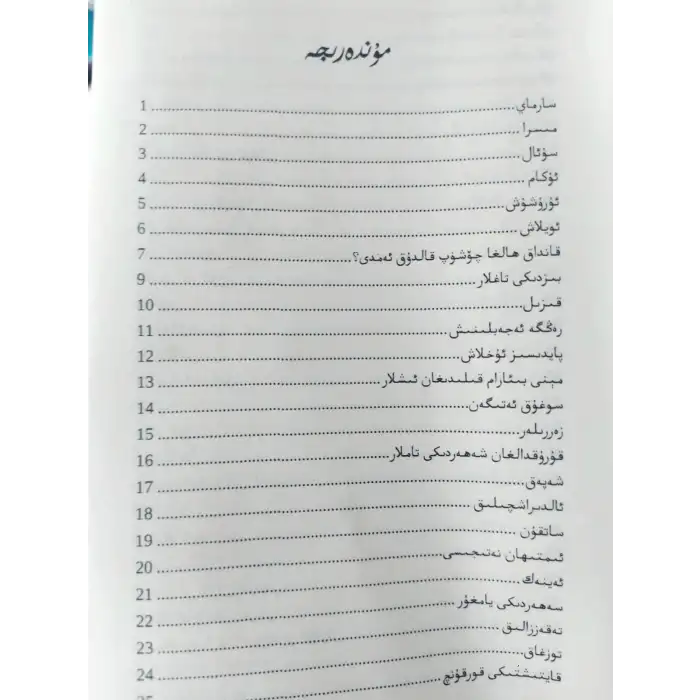 مۇندەرىجە
سارماي 1
مىسرا 2
سۇئال 3
ئۇكام 4
ئۇرۇشۇش 5
ئويلاش 6
قانداق ھالغا چۈشۈپ قالدۇق ئەمدى؟ 7
بىزدىكى تاغلار 9
قىزىل 10
رەڭگە ئەجەبلىنىش 11
پايدىسىز ئۇخلاش 12
مېنى بىئارام قىلىدىغان ئىشلار 13
سوغۇق ئەتىگەن 14
زەررىلەر 15
قۇرۇقدالغان شەھەردىكى تاملار 16
شەپەق 17
ئالدىراشچىلىق 18
ساتقۇن 19
ئىمتىھان نەتىجىسى 20
ئەينەك 21
سەھەردىكى يامغۇر 22
تەقەززالىق 23
توزغاق 24
قايتىشتىكى قورقۇنچ